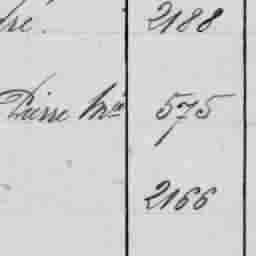 2188
Pierre M 575
2166